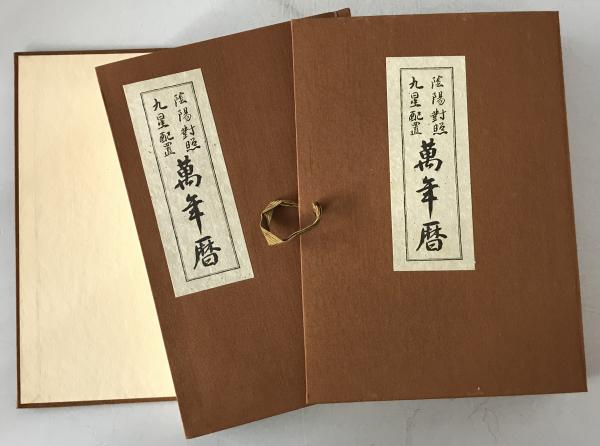 陰陽對照
九星配置
萬年暦
陰陽對照
九星配置
萬年暦